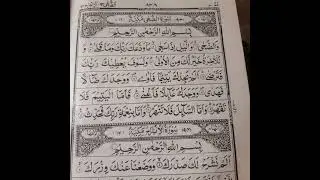 سُوْرَةُ الضُّحٰى مَكِّيَّةٌ
بِسْمِ اللّٰهِ الرَّحْمٰنِ الرَّحِيْمِ
وَالضُّحٰى وَالَّيْلِ اِذَا سَجٰى مَا وَدَّعَكَ رَبُّكَ وَمَا قَلٰى وَ
لَلْاٰخِرَةُ خَيْرٌ لَّكَ مِنَ الْاُوْلٰى وَلَسَوْفَ يُعْطِيْكَ رَبُّكَ
فَتَرْضٰى اَلَمْ يَجِدْكَ يَتِيْمًا فَاٰوٰى وَوَجَدَكَ ضَآلًّا
فَهَدٰى وَوَجَدَكَ عَآئِلًا فَاَغْنٰى فَاَمَّا الْيَتِيْمَ فَلَا
تَقْهَرْ وَاَمَّا السَّآئِلَ فَلَا تَنْهَرْ وَاَمَّا بِنِعْمَةِ رَبِّكَ فَحَدِّثْ
سُوْرَةُ الْاِنْشِرَاحِ مَكِّيَّةٌ
بِسْمِ اللّٰهِ الرَّحْمٰنِ الرَّحِيْمِ
اَلَمْ نَشْرَحْ لَكَ صَدْرَكَ وَوَضَعْنَا عَنْكَ وِزْرَكَ